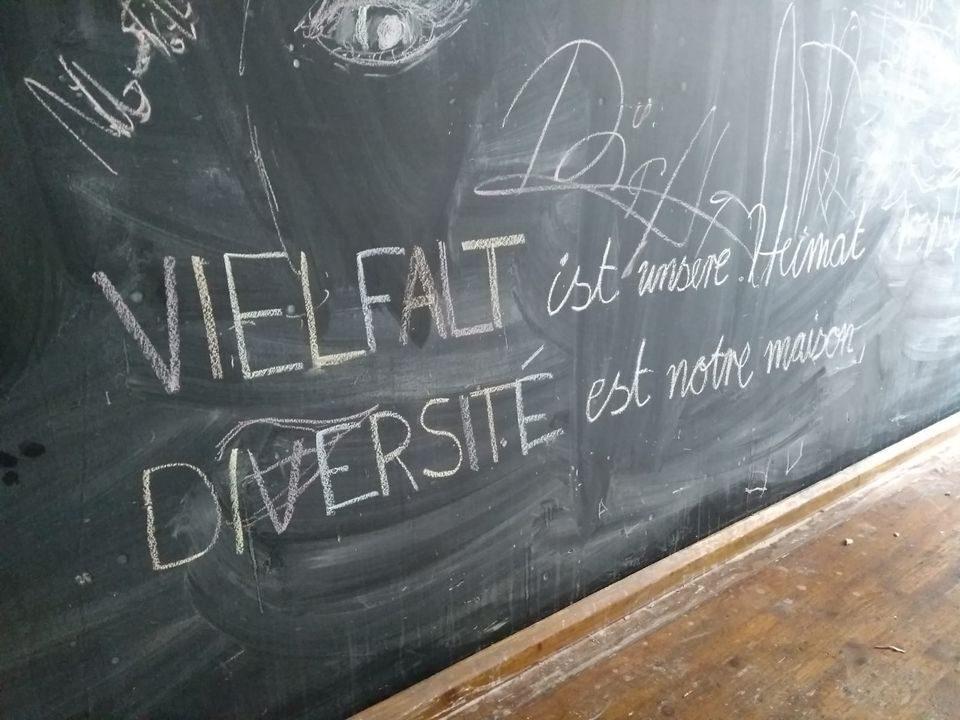 VIELFALT ist unsere Heimat
DIVERSITÉ est notre maison